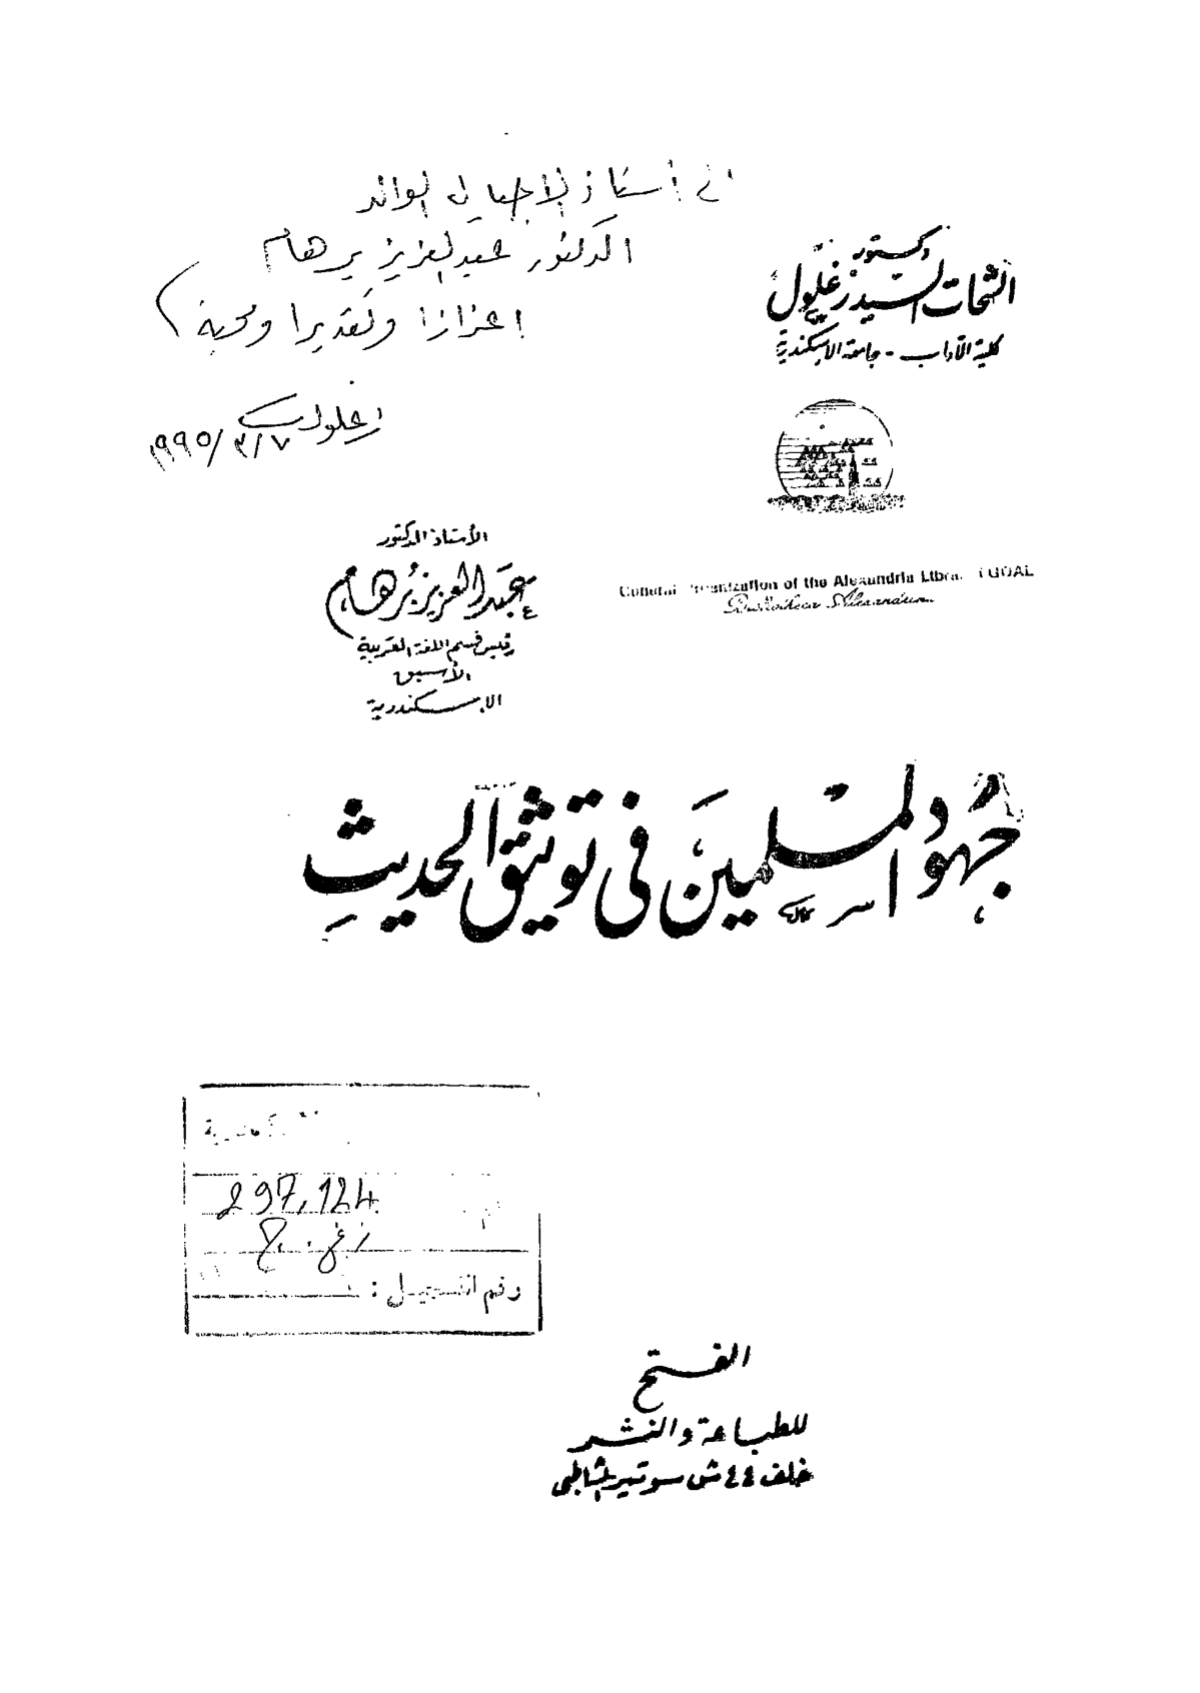 الى أستاذ الاجيال الوالد
الدكتور عبدالعزيز برهام
اعزازا وتقديرا ومحبة
زغلول
١٩٩٥/٣/٧
دكتور
الشحات السيد زغلول
كلية الآداب - جامعة الاسكندرية
الأستاذ الدكتور
عبد العزيز برهام
رئيس قسم اللغة العربية
الأسبق
الاسكندرية
Organization of the Alexandria GOAL
Bibliotheca Alexandrina
جُهود المسلمِينَ فى توثيق الحديثِ
297,124
زغ . ج
رقم التسجيل :
الفتح
للطباعة والنشر
خلف ٤٤ ش سوتير الشاطبى